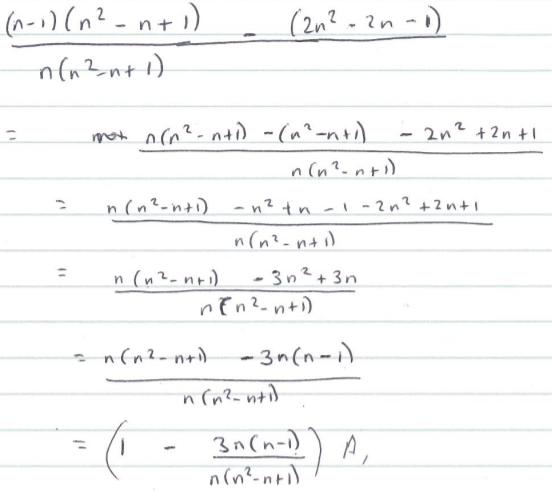 (n-1)(n² - n + 1) - (2n² - 2n - 1)
n(n² - n + 1)
= n(n² - n+1) - (n² - n+1) - 2n² + 2n + 1
n(n² - n + 1)
= n(n² - n+1) - n² + n - 1 - 2n² + 2n + 1
n(n² - n + 1)
= n(n² - n+1) - 3n² + 3n
n(n² - n + 1)
= n(n² - n+1) - 3n(n-1)
n(n² - n+1)
= (1 - 3n(n-1)) A,
n(n² - n+1)